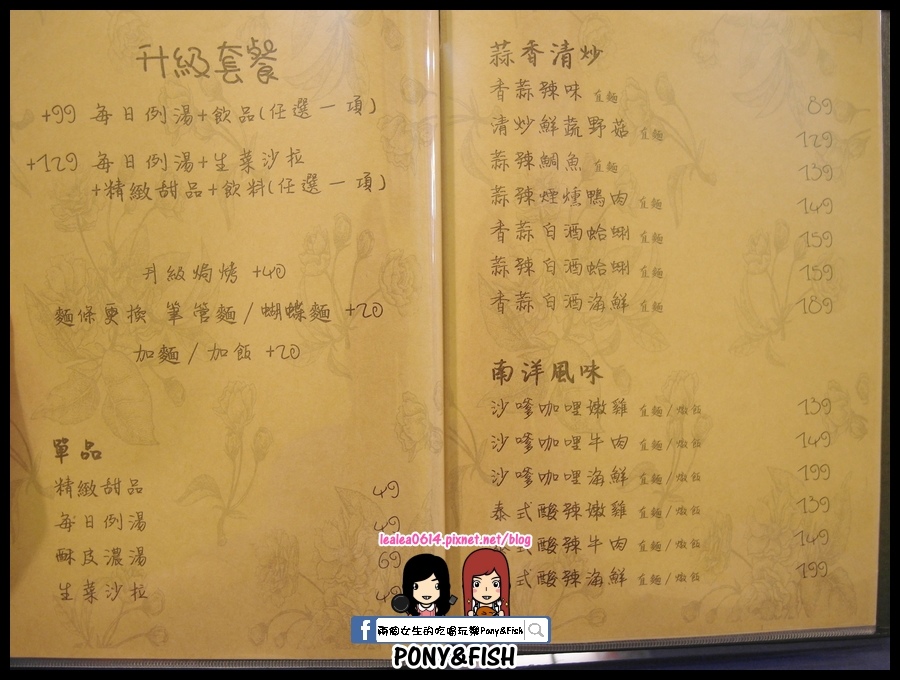 升級套餐
+99 每日例湯+飲品(任選一項)
+129 每日例湯+生菜沙拉
+精緻甜品+飲料(任選一項)
升級焗烤 +40
麵條更換 筆管麵/蝴蝶麵 +20
加麵/加飯 +20
單品
精緻甜品 49
每日例湯 49
酥皮濃湯 69
生菜沙拉 49
蒜香清炒
香蒜辣味 直麵 89
清炒鮮蔬野菇 直麵 129
蒜辣鯛魚 直麵 139
蒜辣煙燻鴨肉 直麵 149
香蒜白酒蛤蜊 直麵 159
蒜辣白酒蛤蜊 直麵 159
香蒜白酒海鮮 直麵 189
南洋風味
沙嗲咖哩嫩雞 直麵/燉飯 139
沙嗲咖哩牛肉 直麵/燉飯 149
沙嗲咖哩海鮮 直麵/燉飯 199
泰式酸辣嫩雞 直麵/燉飯 139
泰式酸辣牛肉 直麵/燉飯 149
式酸辣海鮮 直麵/燉飯 199
lealea0614.pixnet.net/blog
f 兩個女生的吃喝玩樂Pony&Fish
PONY&FISH